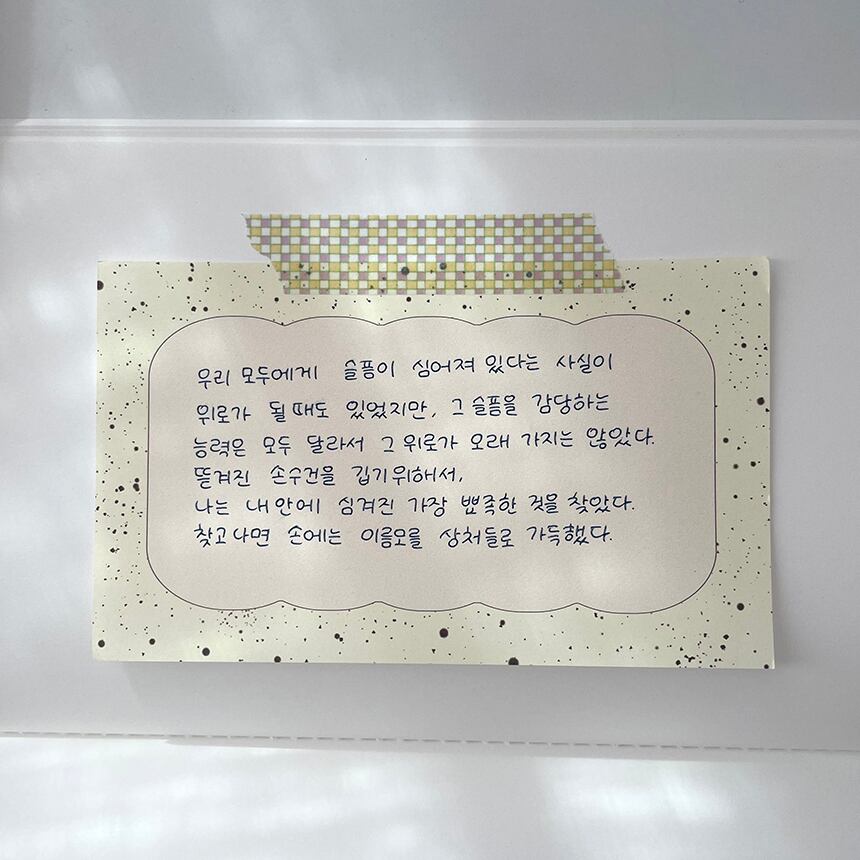 우리 모두에게 슬픔이 심어져 있다는 사실이
위로가 될 때도 있었지만, 그 슬픔을 감당하는
능력은 모두 달라서 그 위로가 오래 가지는 않았다.
뜯겨진 손수건을 깁기 위해서,
나는 내 안에 심겨진 가장 뾰족한 것을 찾았다.
찾고 나면 손에는 이름모를 상처들로 가득했다.